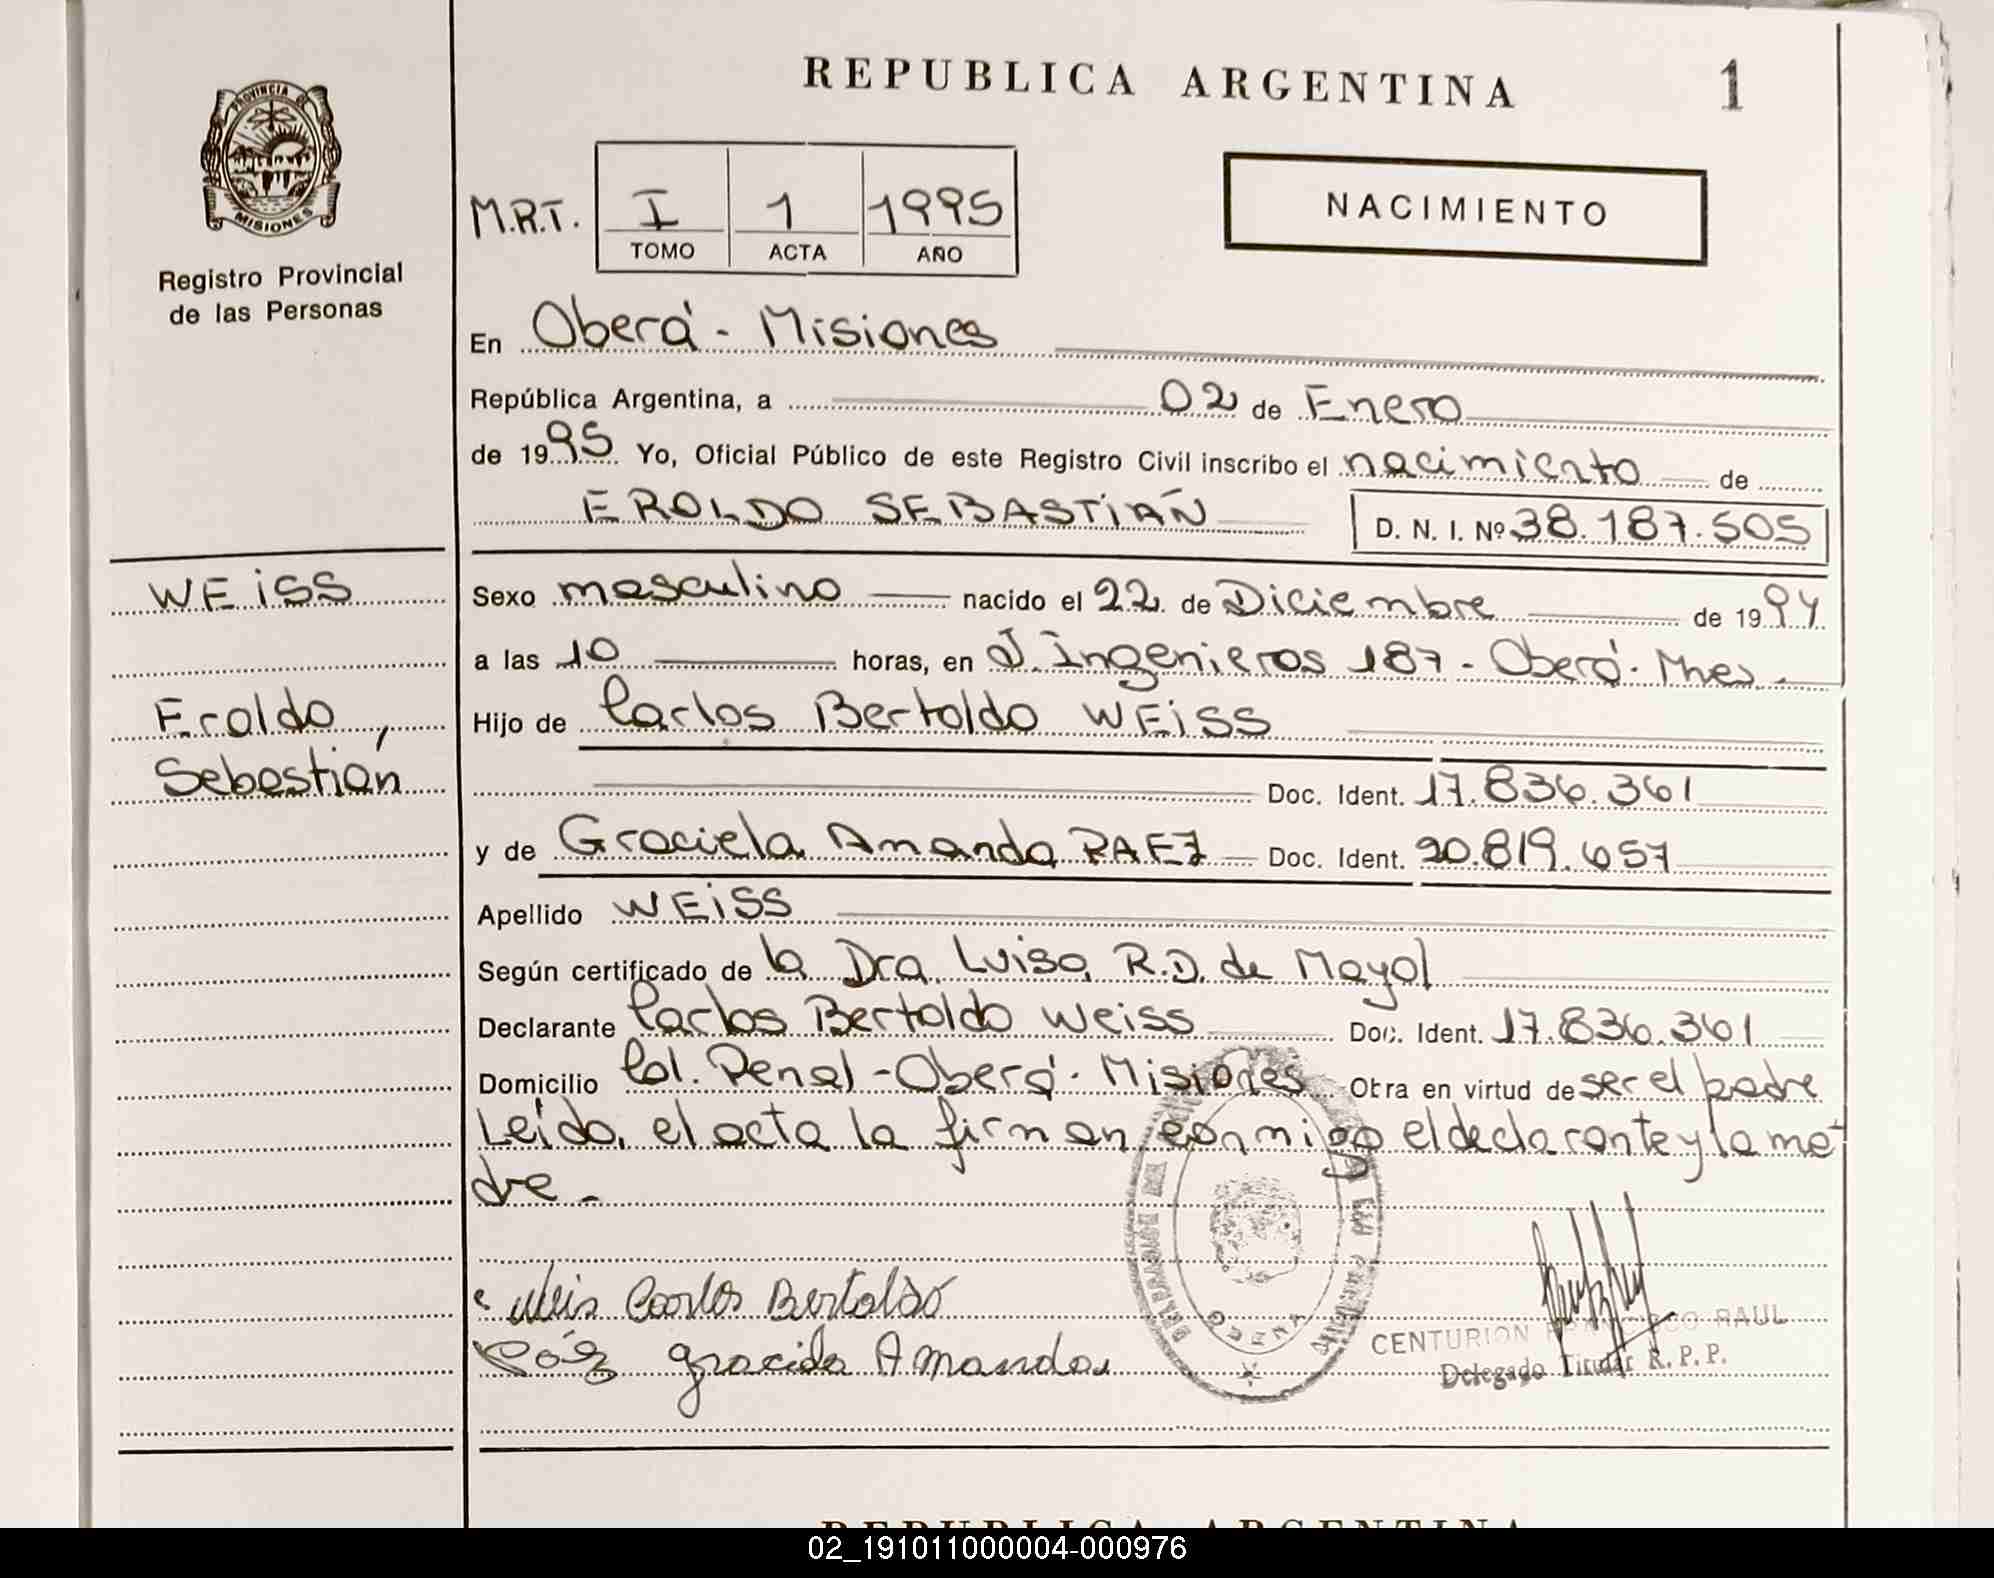 REPUBLICA ARGENTINA
1
PROVINCIA DE
MISIONES
Registro Provincial
de las Personas
M.R.T.
I 1 1995
TOMO ACTA AÑO
NACIMIENTO
En Oberá - Misiones
República Argentina, a 02 de Enero
de 1995 Yo, Oficial Público de este Registro Civil inscribo el nacimiento de
EROLDO SEBASTIÁN D. N. I. Nº 38.187.505
WEiSS
Eroldo,
Sebastián
Sexo masculino nacido el 22 de Diciembre de 1994
a las 10 horas, en J. Ingenieros 187 - Oberá - Mnes.
Hijo de Carlos Bertoldo WEiSS
Doc. Ident. 17.836.361
y de Graciela Amanda PAEZ Doc. Ident. 20.819.657
Apellido WEiSS
Según certificado de la Dra. Luisa R.D. de Mayol
Declarante Carlos Bertoldo Weiss Doc. Ident. 17.836.361
Domicilio Col. Penal - Oberá - Misiones Obra en virtud de ser el padre
Leída el acta la firman conmigo el declarante y la ma-
dre -
Weis Carlos Bertoldo
Páez Graciela Amanda
CENTURION FRANCISCO RAUL
Delegado Titular R. P. P.
REPUBLICA ARGENTINA
02_191011000004-000976